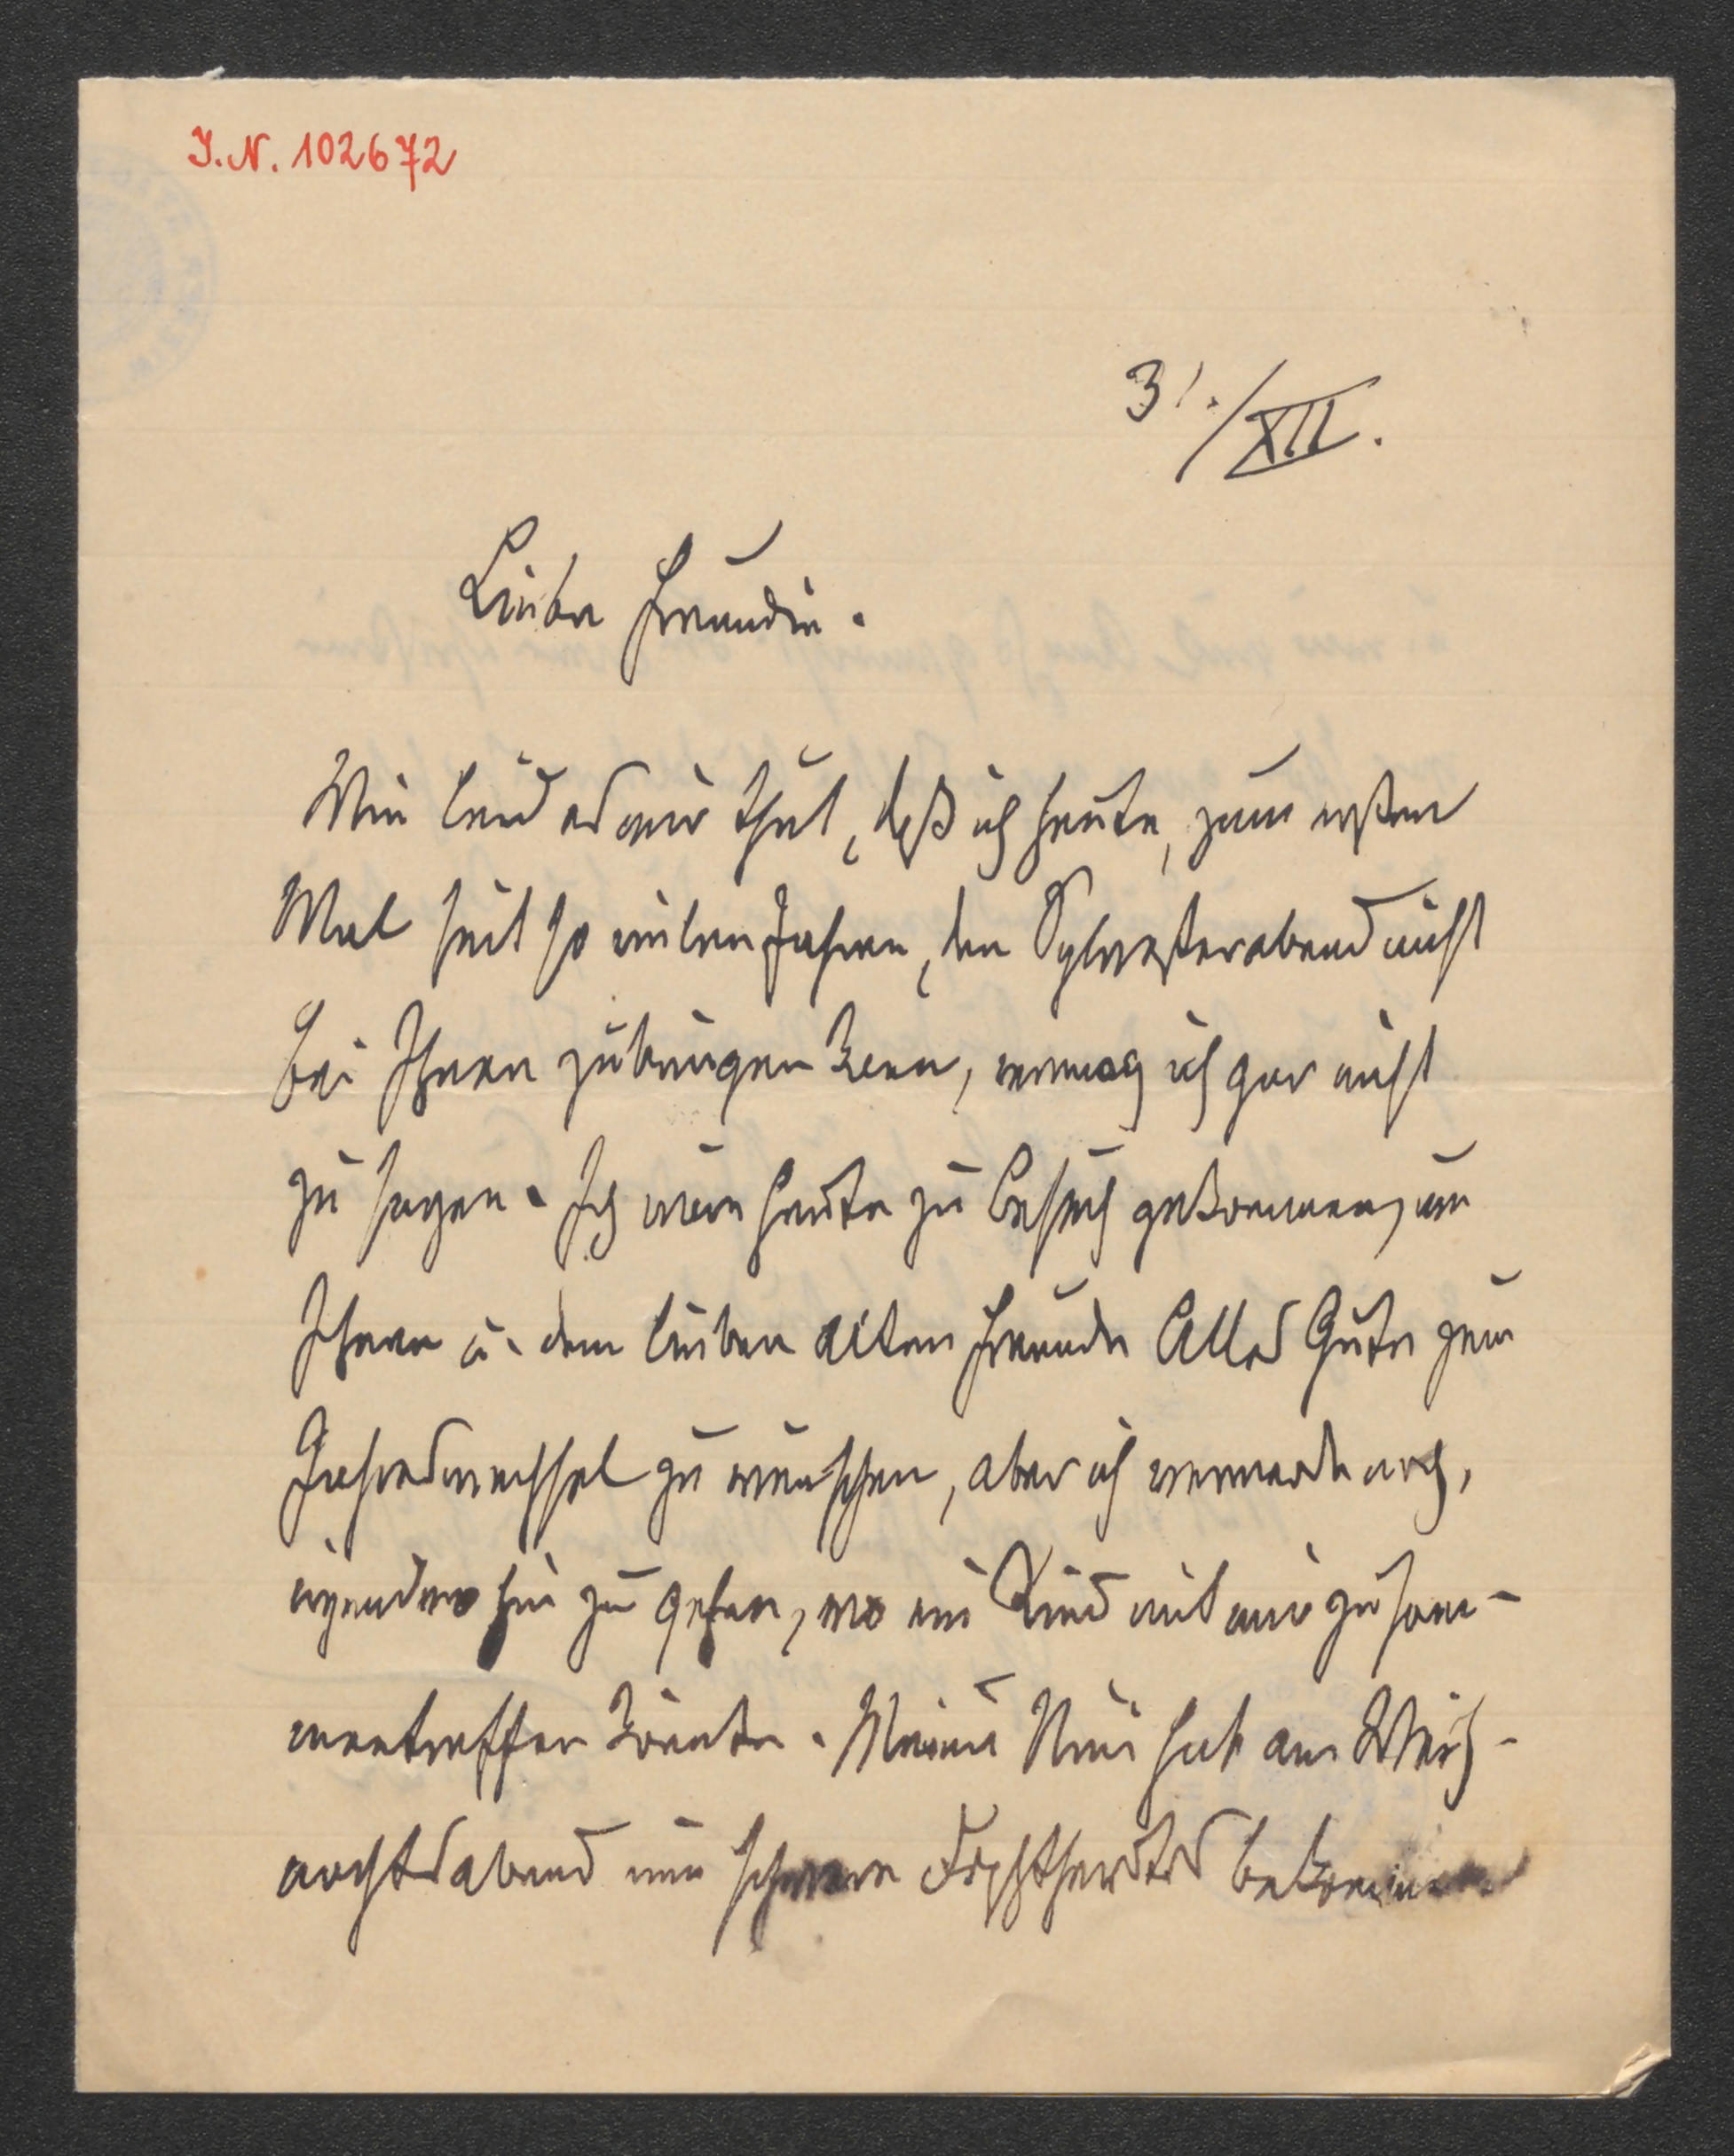 I.N. 102672
31./XII.
Liebe Freundin.
Wie leid es mir thut, daß ich heute, zum ersten
Mal seit so vielen Jahren, den Sylvesterabend nicht
bei Ihnen zubringen kann, vermag ich gar nicht
zu sagen. Ich wäre heute zu Besuch gekommen, um
Ihnen u. dem lieben alten Freunde Alles Gute zum
Jahreswechsel zu wünschen, aber ich vermeide noch,
irgendwo hin zu gehen, wo ein Kind mit mir zusam-
mentreffen könnte. Meine Mimi hat am Weih-
nachtsabend eine schwere Diphtheritis bekommen